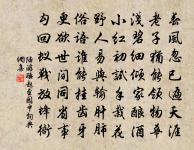 春風忽已遍天涯
老子猶能領物華
淺碧細傾家釀酒
小紅初試手栽花
野人易與輸肝肺
俗語誰能挂齒牙
更欲世間同省事
勾回蟻戰放蜂衙
陸游睡起至園中詞典
網集